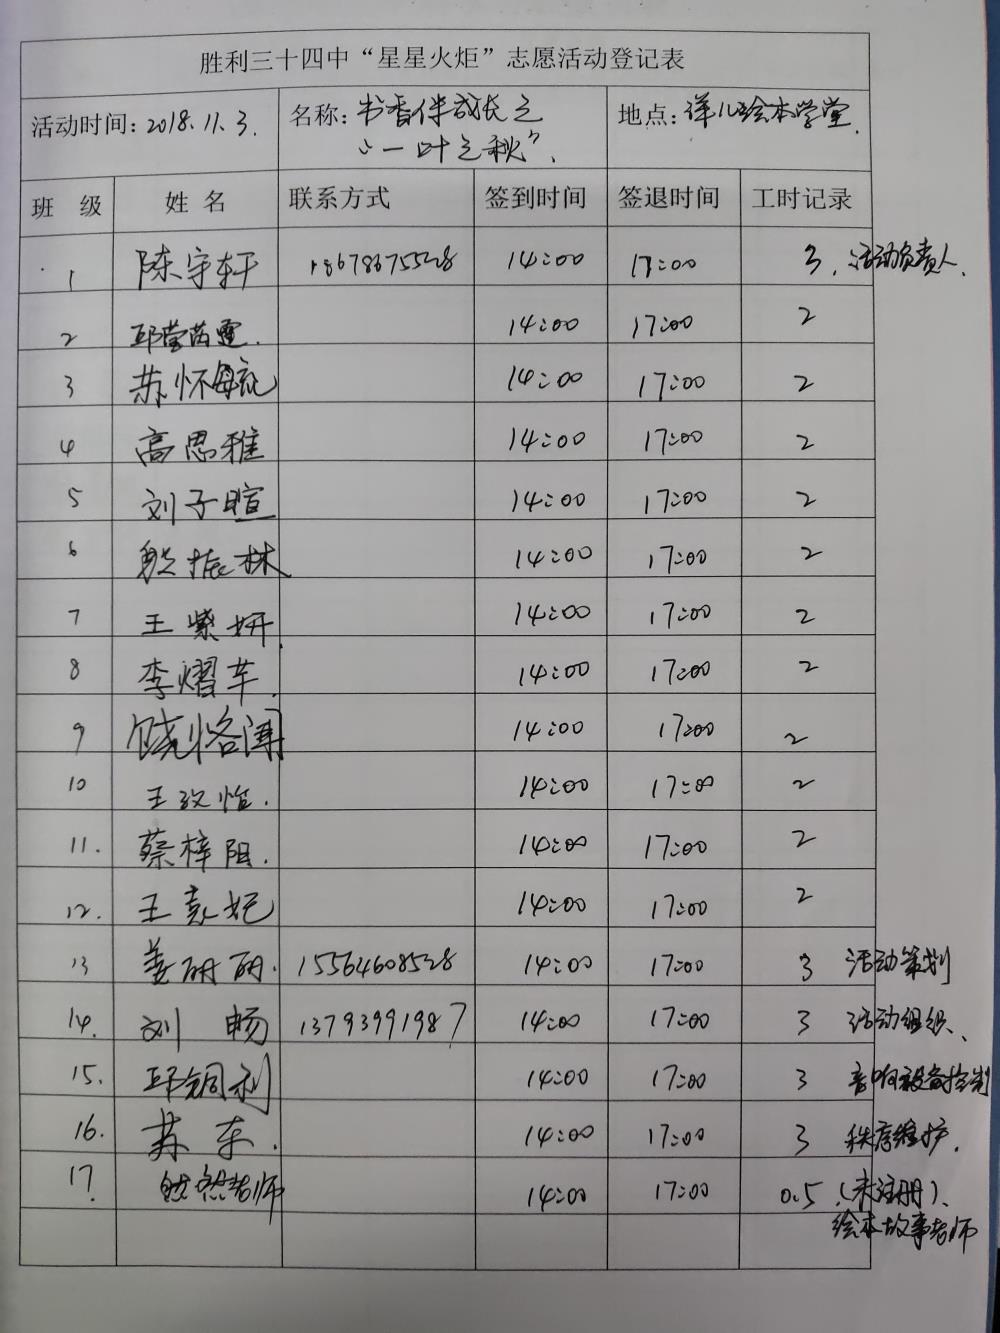 胜利三十四中“星星火炬”志愿活动登记表
活动时间:2018.11.3. 名称:书香伴成长之 地点:详儿绘本学堂.
“一叶之秋”.
班 级 姓 名 联系方式 签到时间 签退时间 工时记录
1 陈宇轩 18678675528 14:00 17:00 3. 活动负责人.
2 邱莹芮霆. 14:00 17:00 2
3 苏怀毓 14:00 17:00 2
4 高思雅 14:00 17:00 2
5 刘子暄 14:00 17:00 2
6 殷振林 14:00 17:00 2
7 王紫妍 14:00 17:00 2
8 李熠芊. 14:00 17:00 2
9 饶恪 14:00 17:00 2
10 王孜怡. 14:00 17:00 2
11. 蔡梓阳. 14:00 17:00 2
12. 王 妃 14:00 17:00 2
13 姜丽丽. 15564608528 14:00 17:00 3 活动策划
14. 刘 畅 13793991987 14:00 17:00 3 活动组织、
15. 邱铜利 14:00 17:00 3 音响设备控制
16. 苏 东. 14:00 17:00 3 秩序维护.
17. 老师 14:00 17:00 0.5 (未注册).
绘本故事老师